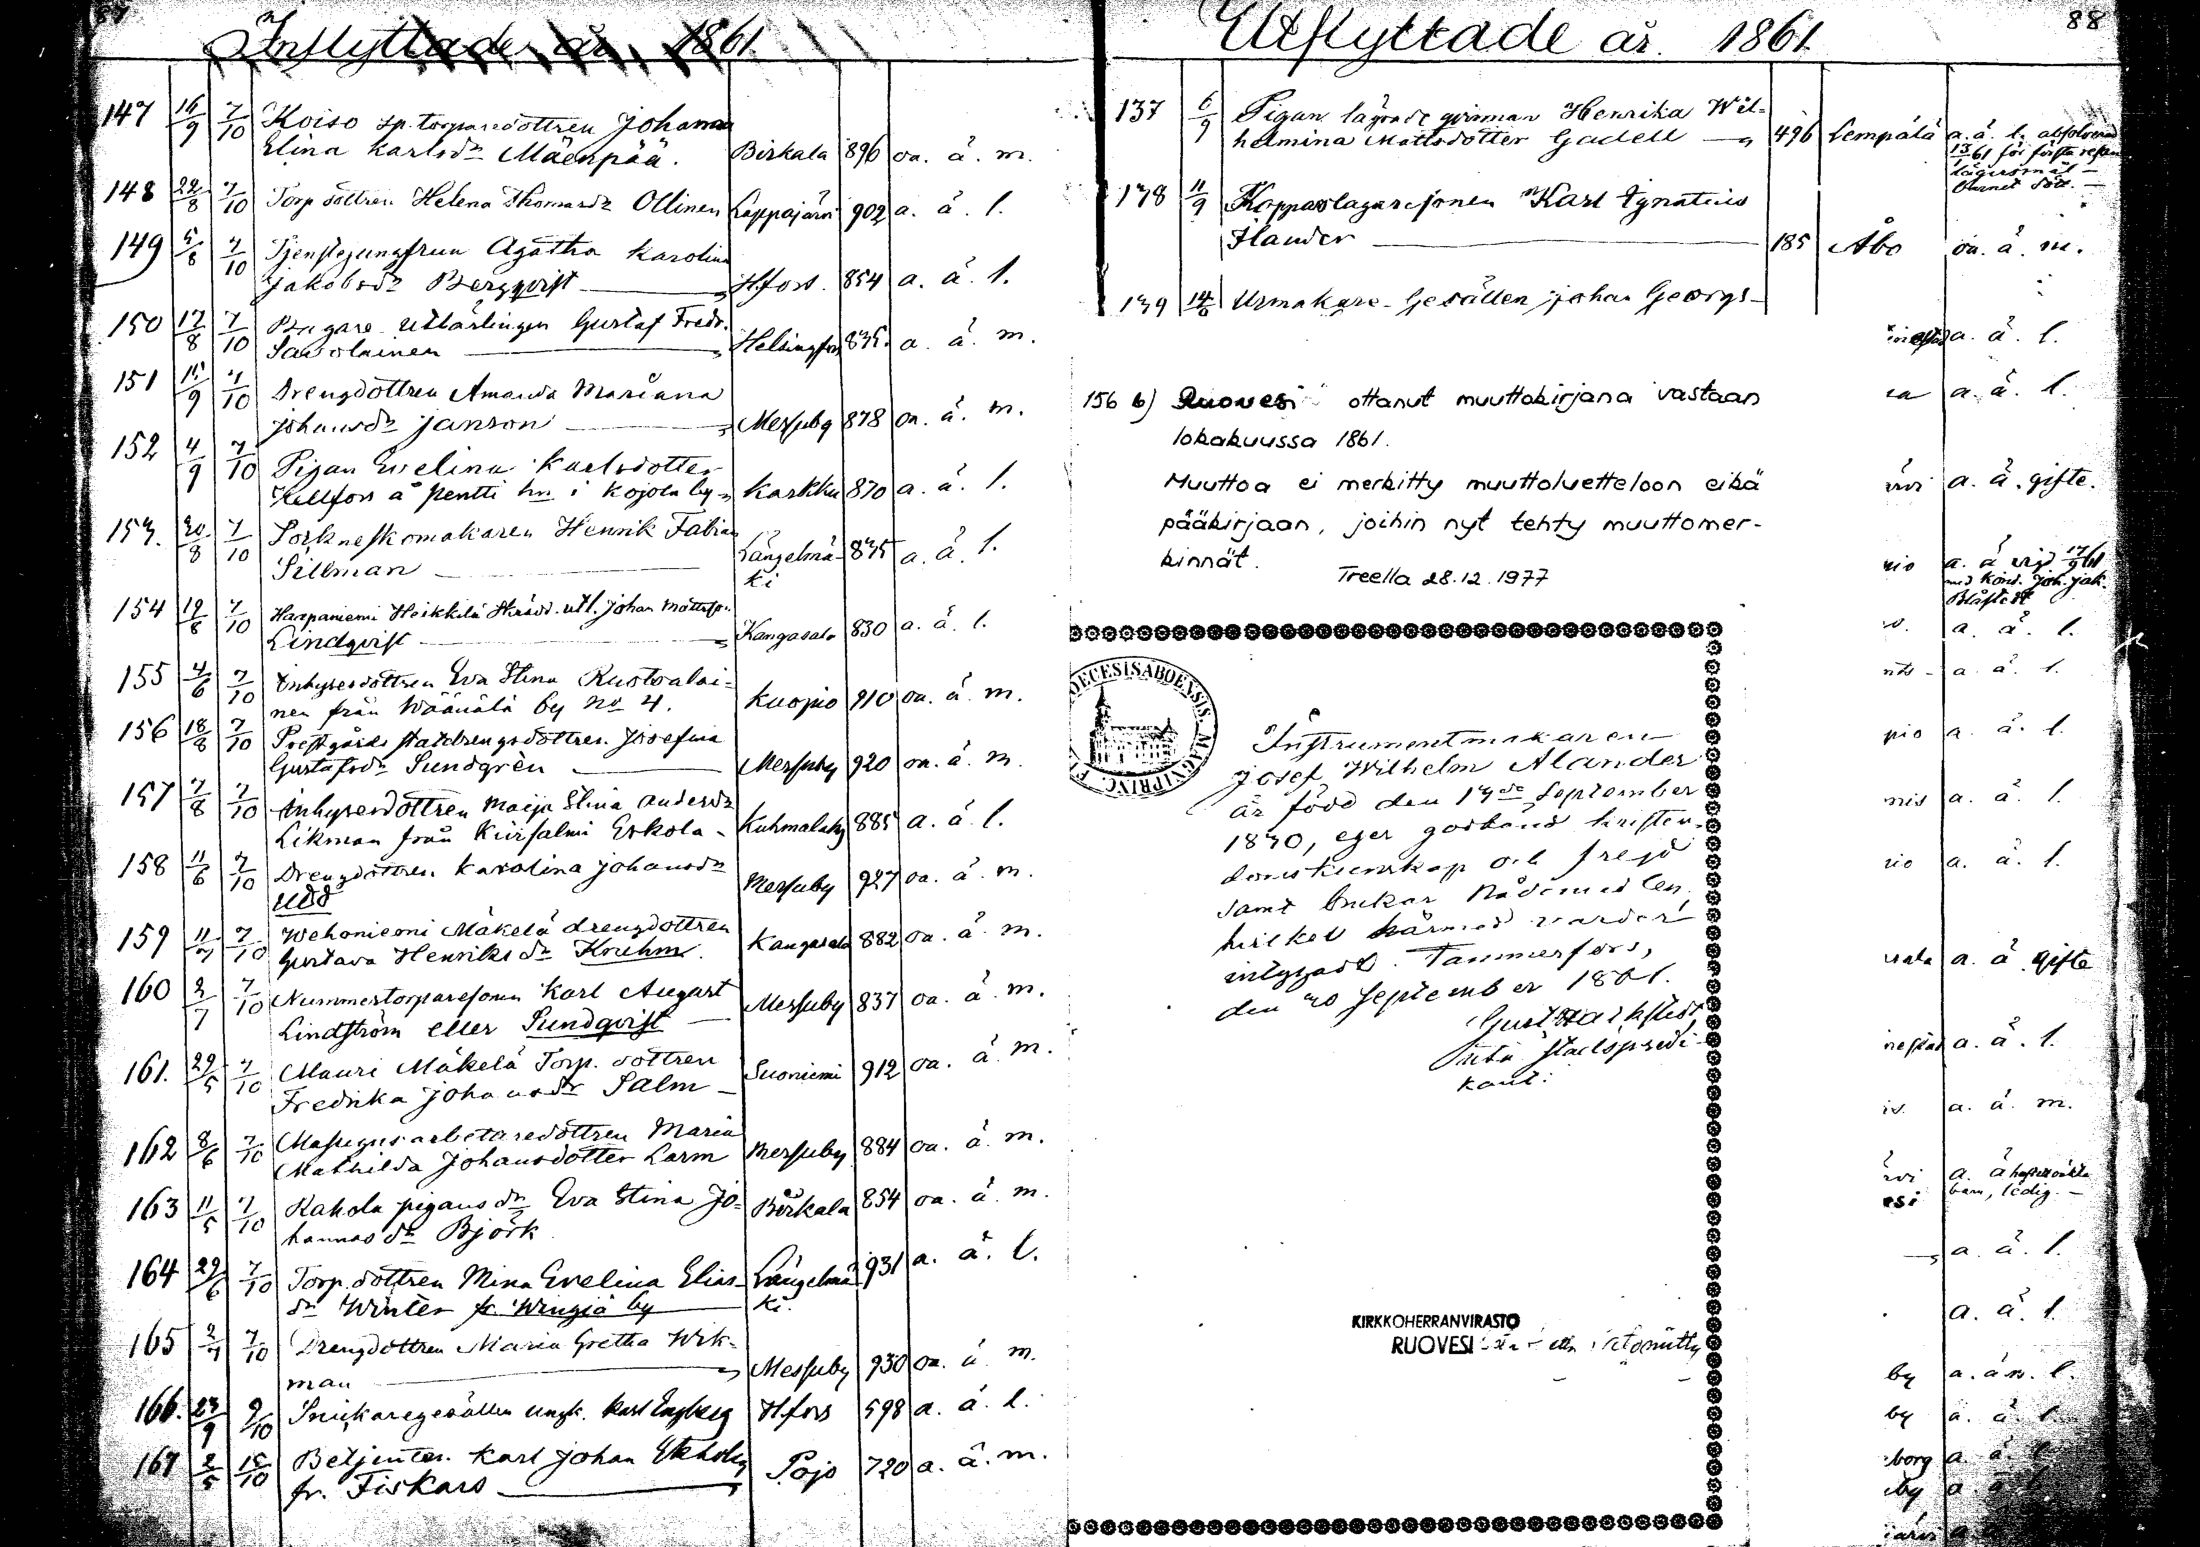 87
Inflyttade år 1861
147 16/9 7/10 Koiso sp. torparedottren Johanna
Elina Karlsdr Mäenpää. Birkala 896 oa. ä. m.
148 22/8 7/10 Torp dottren Helena Thomasdr Ollinen Lappajärvi 902 a. ä. l.
149 5/8 7/10 Tjenstejungfrun Agatha Karolina
Jakobsdr Bergqvist H.fors. 854 a. ä. l.
150 17/8 7/10 Bagare Utlärlingen Gustaf Fredr.
Sawolainen Helsingfors 835. a. ä. m.
151 15/9 7/10 Drengdottren Amanda Mariana
Johansdr Janson Messuby 878 oa. ä. m.
152 4/9 7/10 Pigan Evelina Karlsdotter
Kellfors å Pentti hn i Kojola by Karkku 870 a. ä. l.
153. 20/8 7/10 Sockneskomakaren Henrik Fabian
Sillman Längelmä- 835 a. ä. l.
ki
154 19/8 7/10 Haapaniemi Heikkilä Skrädd. utl. Johan Mattsson
Lindqvist Kangasala 830 a. ä. l.
155 4/6 7/10 Inhysesdottren Eva Stina Ruotoalai-
nen från Wäänälä by No 4. Kuopio 910 oa. ä. m.
156 18/8 7/10 Prestgårds statdrengsdottren Josefina
Gustafsdr Sundgrèn Messuby 920 oa. ä. m.
157 7/8 7/10 Inhysesdottren Maija Stina Andersdr
Likman från Kuisalmi Erkola - Kuhmalaks 885 a. ä. l.
158 11/6 7/10 Drengdottren Karolina Johansdr
Udd Messuby 927 oa. ä. m.
159 11/7 7/10 Wehoniemi Mäkelä drengdottren
Gustava Henriksdr Kruhm. Kangasala 882 oa. ä. m.
160 2/7 7/10 Nummestorparesonen Karl August
Lindström eller Sundqvist Messuby 837 oa. ä. m.
161. 29/5 7/10 Mauri Mäkelä Torp. dottren
Fredrika Johansdr Salm Suoniemi 912 oa. ä. m.
162 8/6 7/10 Masugnsarbetaredottren Maria
Mathilda Johansdotter Larm Messuby 884 oa. ä. m.
163 11/5 7/10 Kahola pigans dr Eva Stina Jo-
hannasdr Björk Birkala 854 oa. ä. m.
164 29/6 7/10 Torp. dottren Mina Evelina Elias-
dr Winter fr. Wengiä by Längelmä- 931 a. ä. l.
ki.
165 2/7 7/10 Drengdottren Maria Gretha Wik-
man Messuby 930 oa. ä. m.
166. 23/9 9/10 Snickaregesällen ungk. Karl Engberg H.fors 598 a. ä. l.
167 2/5 15/10 Betjenten Karl Johan Ekholm
fr. Fiskars Pojo 720 a. ä. m.
Utflyttade år. 1861. 88
137 6/9 Pigan lägrade qvinnan Henrika Wil-
helmina Mattsdotter Gadell 496 Lempälä a. ä. l. absolverad
13/1 61 för första resan
lägersmål
barnet dött. —
138 11/9 Kopparslagaresonen Karl Ignatius
Flander 185 Åbo oa. ä. m.
139 14/9 Urmakare-Gesällen Johan Georgs-
a. ä. l.
156 b) Ruovesi ottanut muuttokirjana vastaan
lokakuussa 1861.
Muuttoa ei merkitty muuttoluetteloon eikä
pääkirjaan, joihin nyt tehty muuttomer-
kinnät.
Treella 28.12.1977
DECESIS ABOENSIS. MAGNI PRINC. F
Instrumentmakaren
Josef Wilhelm Alander
är född den 13de September
1830, eger godkänd kristen-
domskunskap och frejd
samt brukar Nådemedlen,
hvilket härmed varder
intygadt. Tammerfors,
den 20 September 1861.
Gust.
Stadspredi-
kant.
KIRKKOHERRANVIRASTO
RUOVESI
a. ä. l.
a. ä. gifte.
a. ä. l.
a. ä. l.
a. ä. l.
a. ä. l.
a. ä. l.
a. ä. gifte
a. ä. l.
a. ä. m.
barn, ledig. —
a. ä. l.
a. ä. l.
by a. ä. l.
by a. ä. l.
borg a. ä. l.